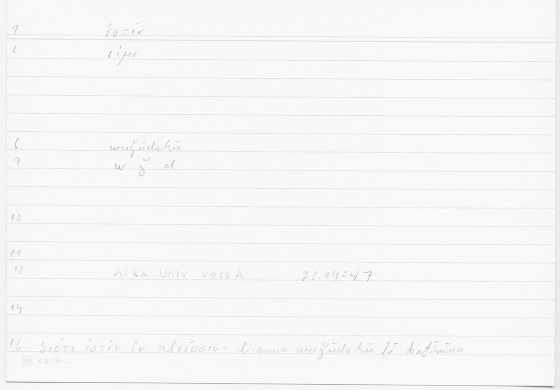 1 ἐστίν
2 εἰμι
6 wuǧūduhū
7 w ǧ d
10
11
12 Alex Univ versA 22.19:47
14
16 διότι ἐστὶν ἐν πλείοσιν = li-anna wuǧūduhū fī kaṯīrīna